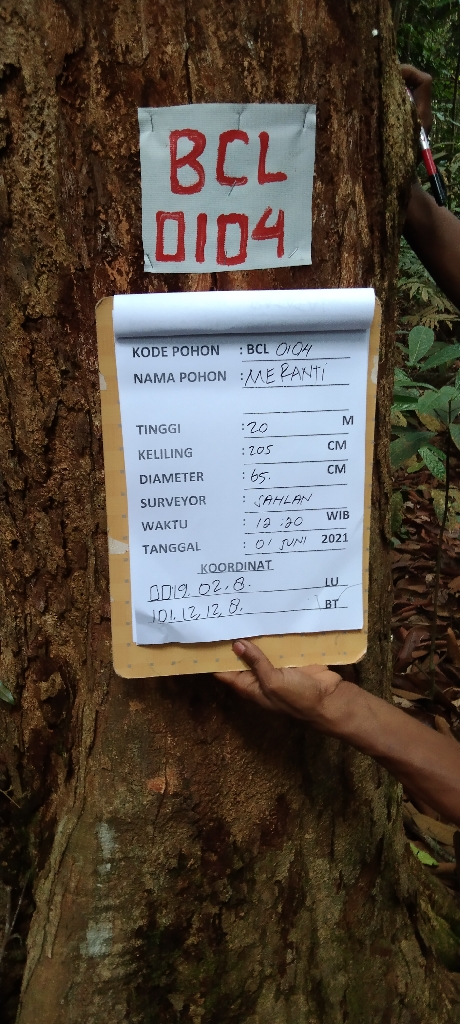 BCL
0104
KODE POHON : BCL 0104
NAMA POHON : MERANTI
TINGGI : 20 M
KELILING : 205 CM
DIAMETER : 65. CM
SURVEYOR : SAHLAN
WAKTU : 12:20 WIB
TANGGAL : 01 JUNI 2021
KOORDINAT
0019.02.8. LU
101.12.12.8. BT